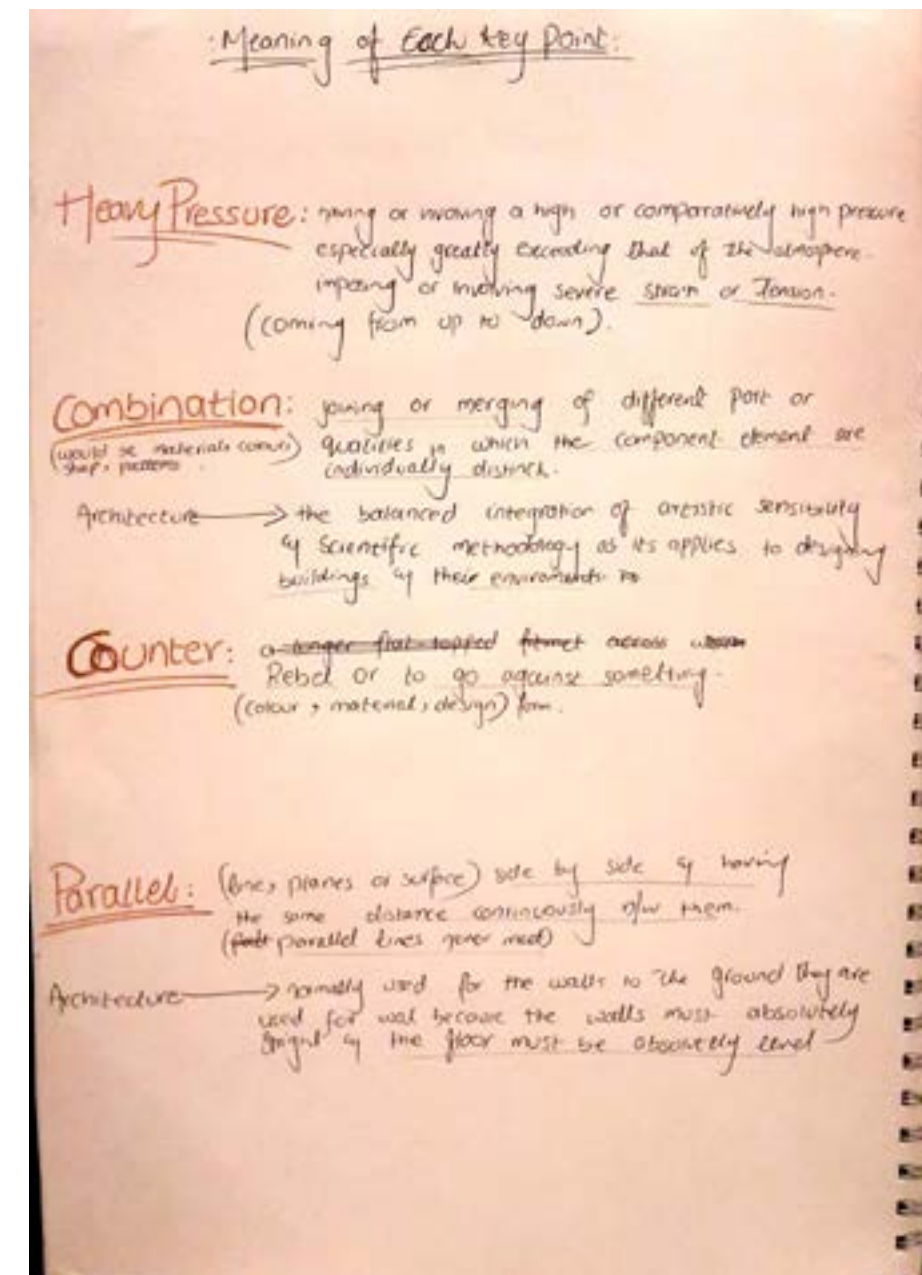 Meaning of Each Key Point:
Heavy Pressure: having or invoving a high or comparatively high pressure
especially greatly exceeding that of the atmosphere.
imposing or involving severe strain or Tension.
(coming from up to down).
Combination: joining or merging of different part or
(would be materials colours) qualities in which the component element are
shape, patterns individually distinct.
Architecture → the balanced integration of artistic sensibility
& Scientific methodology as its applies to designing
buildings & their enviroments
Counter: a longer flat-topped fitmet across
Rebel or to go against something.
(colour, material, design) form.
Parallel: (line, planes or surface) side by side & having
the same distance continuously b/w them.
(parallel lines never meet)
Architecture → normally used for the walls to the ground they are
used for wal because the walls must absolutely
& the floor must be absolutely level